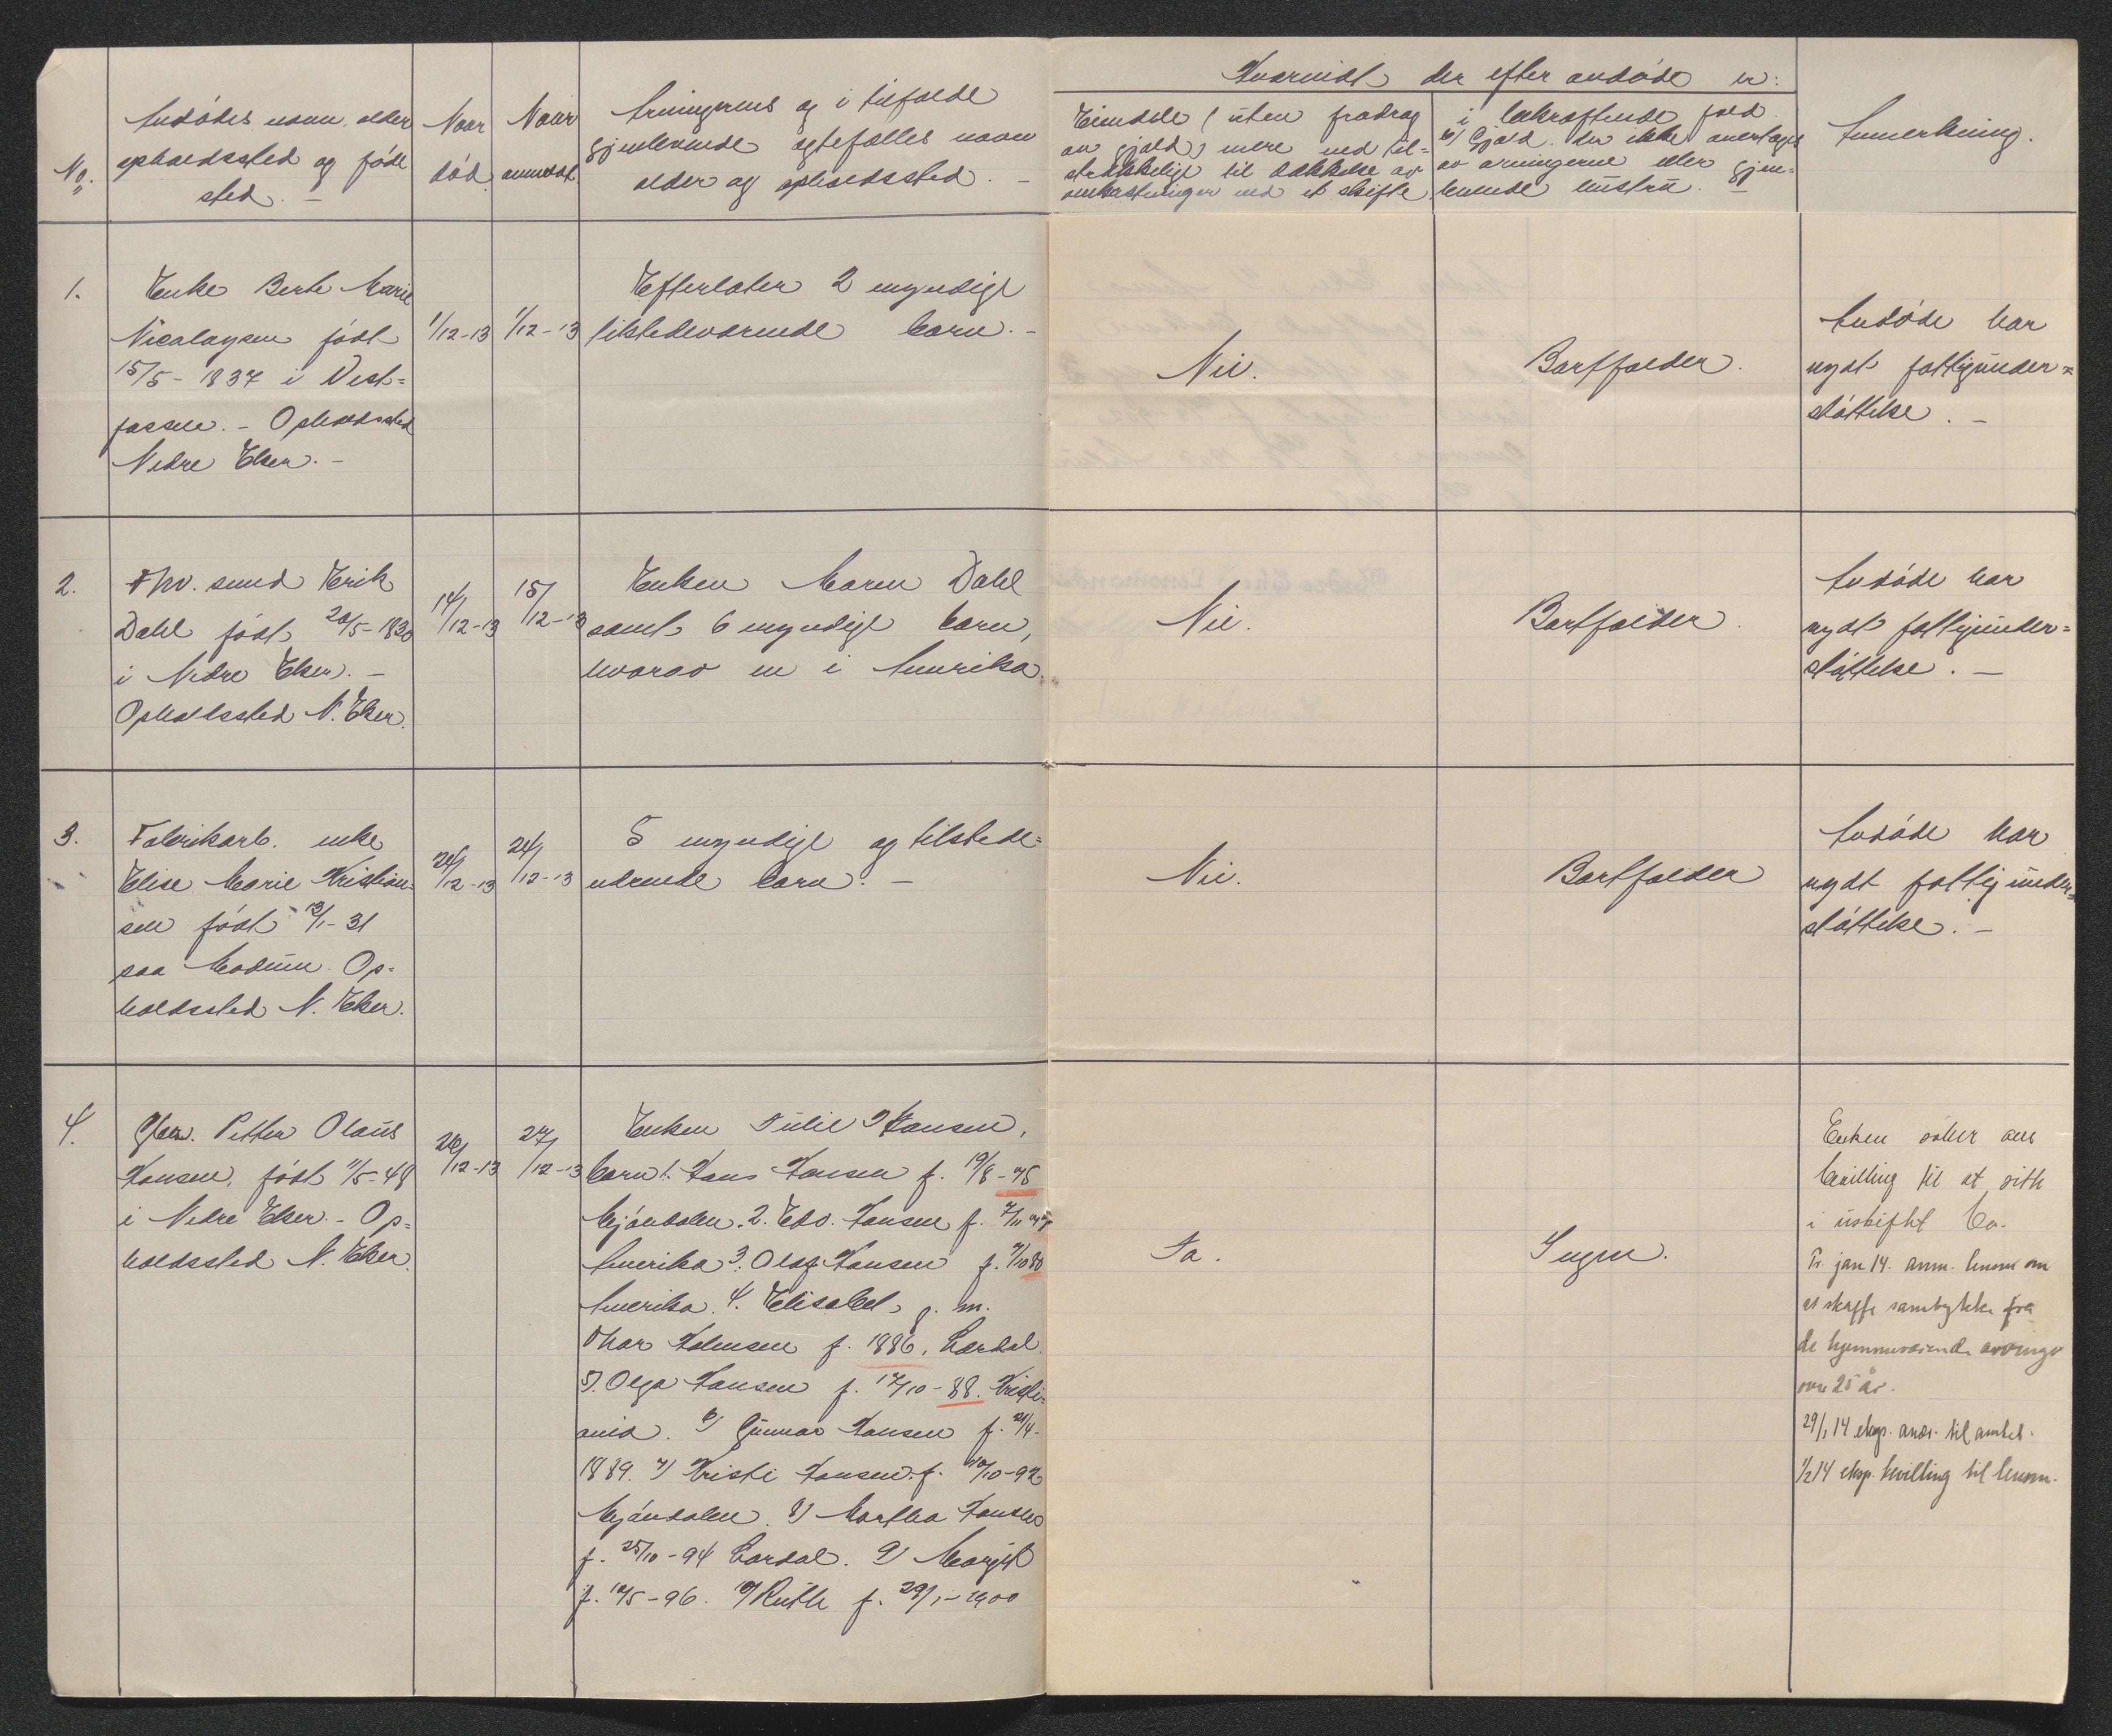 No.
Avdødes navn, alder
opholdssted og føde
sted. –
Naar
død.
Naar
anmeldt.
Arvingernes og i tilfælde
gjenlevende egtefælles navn
alder og opholdssted. –
Hvorvidt der efter avdøde er:
Eiendele (uten fradrag
av gjæld) mere end til-
strækkelige til dækkelse av
omkostninger ved et skifte
i bekræftende fald
gjæld der ikke overtages
av arvingerne eller gjen=
levende enstru. –
Anmerkning.
1.
Enke Berte Marie
Nicolaysen født
15/5 - 1837 i Vest=
fossen. – Opholdssted
Nedre Eker. –
1/12-13
1/12-13
Efterlater 2 myndige
tilstedeværende barn. –
Nei.
Bortfalder.
Avdøde har
nydt fattigunder=
støttelse. –
2.
Fhv. smed Erik
Dahl født 20/5-1830
i Nedre Eker. –
Opholdssted N. Eker.
14/12-13
15/12-13
Enken Maren Dahl
samt 6 myndige barn,
hvorav en i Amerika.
Nei.
Bortfalder.
Avdøde har
nydt fattigunder=
støttelse. –
3.
Fabrikarb. enke
Elise Marie Kristian=
sen født 13/1-31
paa Modum. Op=
holdssted N. Eker.
24/12-13
24/12-13
5 myndige og tilstede=
værende barn. –
Nei.
Bortfalder
Avdøde har
nydt fattigunder=
støttelse. –
4.
Petter Olaus
Hansen, født 11/5-48
i Nedre Eker. – Op=
holdssted N. Eker.
26/12-13
27/12-13
Enken Julie Hansen,
barn 1. Hans Hansen f. 19/8-75
Mjøndalen. 2. Edv. Hansen f.
Amerika 3. Olaf Hansen f. 7/10 80
Amerika. 4. Elisabet, g. m.
Thor f. 1886, Lardal.
5). Olga Hansen f. 17/10-88. Kristi=
ania. 6) Gunnar Hansen f. 21/4-
1889. 7) Kristi Hansen. f. 10/10-92
Mjøndalen. 8) Martha Hansen
f. 25/10-94 Lardal. 9) Margit
f. 10/5-96. 10) Ruth f. 29/1-1900
Ja.
Ingen.
Enken søker om
bevilling til at sitte
i uskiftet bo.
jan 14. anm. lensm om
at skaffe samtykke fra
de hjemmeværende arvinger
over 25 år.
29/1 14 eksp. andr. til amtet.
1/2 14 eksp. bevilling til lensm.